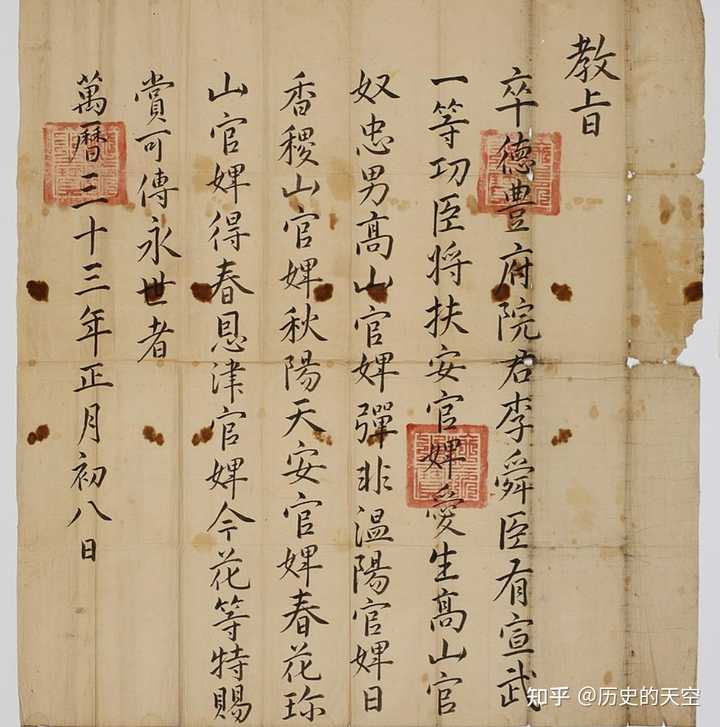 教旨
卒德豊府院君李舜臣有宣武
一等功臣将扶安官婢愛生高山官
奴忠男高山官婢彈非温陽官婢日
香稷山官婢秋陽天安官婢春花珎
山官婢得春恩津官婢今花等特賜
賞可傳永世者
萬曆三十三年正月初八日
知乎 @历史的天空